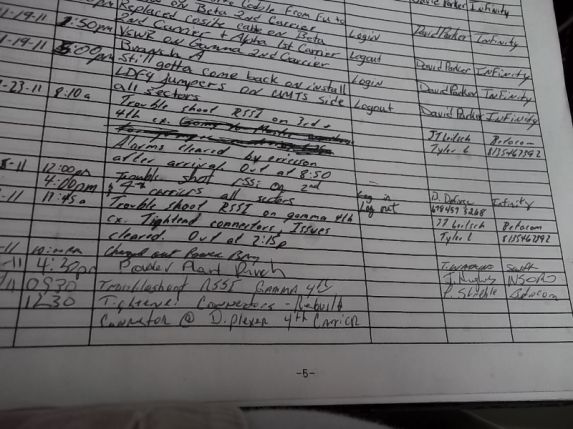 Cable From Fu to
on Beta 2nd Carrier David Parker Infinity
Replaced cosite cable on Beta
1-19-11 2:50pm 2nd Carrier + Alpha 1st Carrier Login David Parker Infinity
VSWR on Gamma 2nd Carrier Logout
1-19-11 5:00pm Branch A David Parker Infinity
Still gotta come back an install Login
LDF4 jumpers on UMTS side Logout David Parker Infinity
all sectors
-23-11 8:10a Trouble shoot RSSI on 3rd + JJ Betacom
4th cx. Tyler L 8135467892
Alarms cleared by ericson
after arrival Out at 8:50
8-11 12:00am Trouble shot RSSI on 2nd
4:00pm + 4th carriers all sectors Log in D. Infinity
-11 11:45a Trouble shoot RSSI on gamma 4th Log out
cx. Tightend connectors, Issues JJ Betacom
cleared. Out at 2:15p Tyler L 8135467892
-11 Changed out Power
11 4:30pm Power Plant
/11 0930 Troubleshoot RSSI Gamma 4th
1230 Tightened Connectors - Rebuilt
Connector @ Diplexer 4th Carrier
-5-